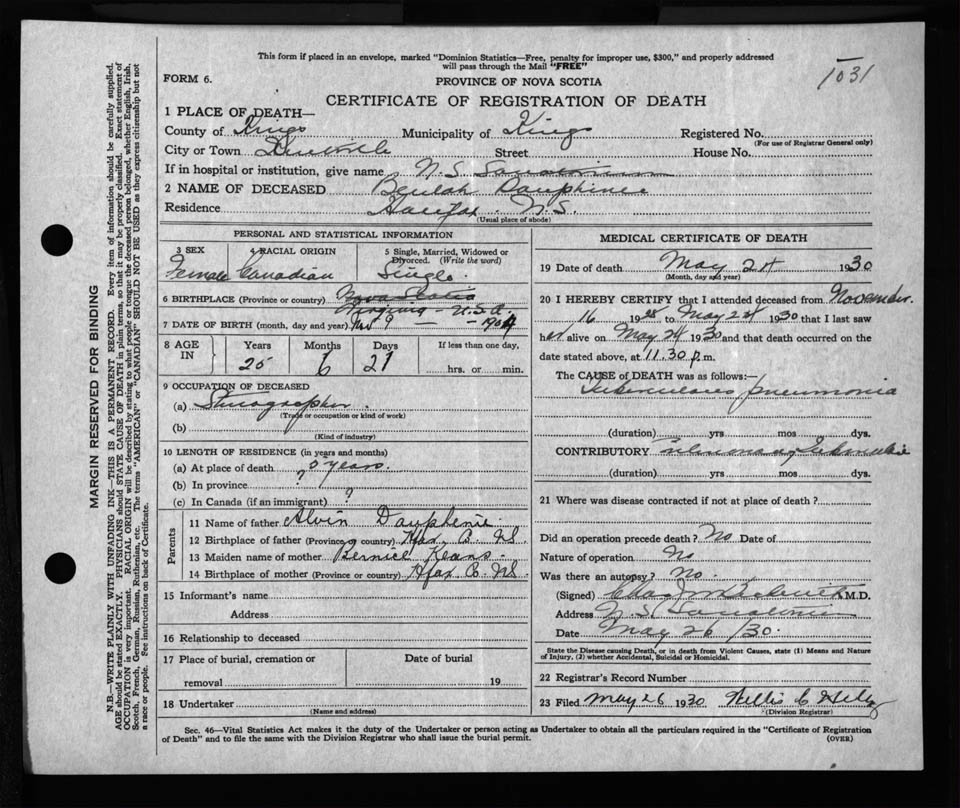 This form if placed in an envelope, marked "Dominion Statistics—Free, penalty for improper use, $300," and properly addressed
will pass through the Mail "FREE"
1031
FORM 6.
PROVINCE OF NOVA SCOTIA
CERTIFICATE OF REGISTRATION OF DEATH
1 PLACE OF DEATH—
County of Kings Municipality of Kings Registered No.
(For use of Registrar General only)
City or Town Street House No.
If in hospital or institution, give name N. S. Sanatorium
2 NAME OF DECEASED Beulah Dauphinee
Residence Halifax. N.S.
(Usual place of abode)
PERSONAL AND STATISTICAL INFORMATION
3 SEX 4 RACIAL ORIGIN 5 Single, Married, Widowed or
Divorced. (Write the word)
Female Canadian Single.
6 BIRTHPLACE (Province or country) Nova Scotia
U.S.A.
7 DATE OF BIRTH (month, day and year) Nov 9 — 1904
8 AGE IN Years Months Days If less than one day,
25 6 21 hrs. or min.
9 OCCUPATION OF DECEASED
(a) Stenographer.
(Trade or occupation or kind of work)
(b)
(Kind of industry)
10 LENGTH OF RESIDENCE (in years and months)
(a) At place of death years.
(b) In province ?
(c) In Canada (if an immigrant) ?
Parents
11 Name of father Alvin Dauphinie
12 Birthplace of father (Province or country) Hfax Co. NS.
13 Maiden name of mother Bernice
14 Birthplace of mother (Province or country) Hfax Co. NS.
15 Informant's name
Address
16 Relationship to deceased
17 Place of burial, cremation or Date of burial
removal 19
18 Undertaker
(Name and address)
MEDICAL CERTIFICATE OF DEATH
19 Date of death May 24 1930
(Month, day and year)
20 I HEREBY CERTIFY that I attended deceased from November.
16 1928 to May 24 1930 that I last saw
her alive on May 24 1930 and that death occurred on the
date stated above, at 11.30 p.m.
The CAUSE of DEATH was as follows:—
Tuberculous pneumonia
(duration) yrs mos dys.
CONTRIBUTORY
(duration) yrs. mos. dys.
21 Where was disease contracted if not at place of death?
Did an operation precede death? No Date of
Nature of operation No
Was there an autopsy? No.
(Signed) M.D.
Address N.S. Sanatorium
Date May 26/30.
State the Disease causing Death, or in death from Violent Causes, state (1) Means and Nature
of Injury, (2) whether Accidental, Suicidal or Homicidal.
22 Registrar's Record Number
23 Filed May 26 1930
(Division Registrar)
Sec. 46—Vital Statistics Act makes it the duty of the Undertaker or person acting as Undertaker to obtain all the particulars required in the "Certificate of Registration
of Death" and to file the same with the Division Registrar who shall issue the burial permit.
(OVER)
MARGIN RESERVED FOR BINDING
N.B.—WRITE PLAINLY WITH UNFADING INK—THIS IS A PERMANENT RECORD. Every item of information should be carefully supplied.
AGE should be stated EXACTLY. PHYSICIANS should STATE CAUSE OF DEATH in plain terms, so that it may be properly classified. Exact statement of
OCCUPATION is very important. RACIAL ORIGIN will be described by stating to what people or tongue the deceased person belonged, whether English, Irish,
Scotch, French, German, Russian, Ruthenian, etc. The terms "AMERICAN" or "CANADIAN" SHOULD NOT BE USED as they express citizenship but not
a race or people. See instructions on back of Certificate.